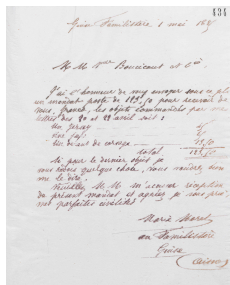 434
Guise Familistère, 1 mai 18
M. M. Vve Boucicaut et Cie.
J'ai l'honneur de vous envoyer sous ce pli
un mandat poste de 129.50 pour recouvrir de
mes, objets commandés par
lettres des 20 et 22 avril soit :
Un
Un
Un
total 129.50
Si pour le dernier objet je
vous devais quelque chose, vous voudrez bien
me le dire.
Veuillez, M. M. m'accuser réception
du présent mandat et agréer, je vous prie
mes parfaites civilités.
Marie Moret
au Familistère
Guise
Aisne